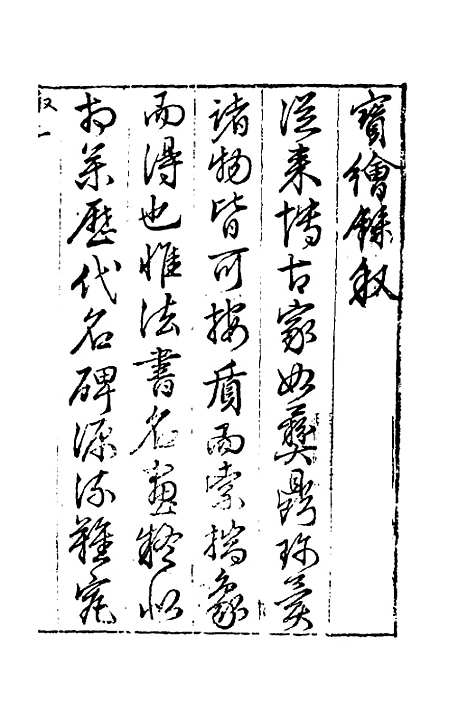 寶繪錄叙
從來博古家如彝鼎珍異
諸物皆可按質而索揣象
而得也惟法書名畫疑似
相業歷代名碑源流難究
叙一